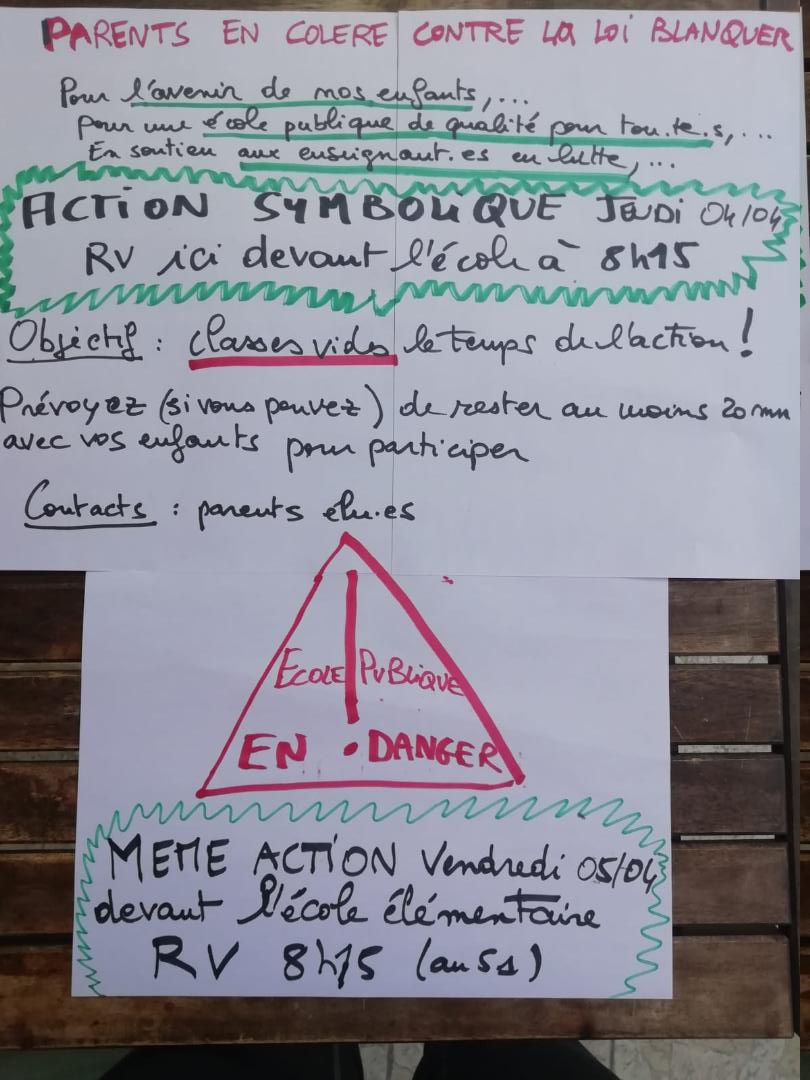 PARENTS EN COLERE CONTRE LA LOI BLANQUER
Pour l'avenir de nos enfants,...
pour une école publique de qualité pour tou.te.s,...
En soutien aux enseignant.es en lutte,...
ACTION SYMBOLIQUE JEUDI 04/04
RV ici devant l'école à 8h15
Objectif : classes vides le temps de l'action !
Prévoyez (si vous pouvez) de rester au moins 20 mn
avec vos enfants pour participer
Contacts : parents élu.es
ECOLE PUBLIQUE
EN DANGER
MEME ACTION Vendredi 05/04
devant l'école élémentaire
RV 8h15 (au 51)